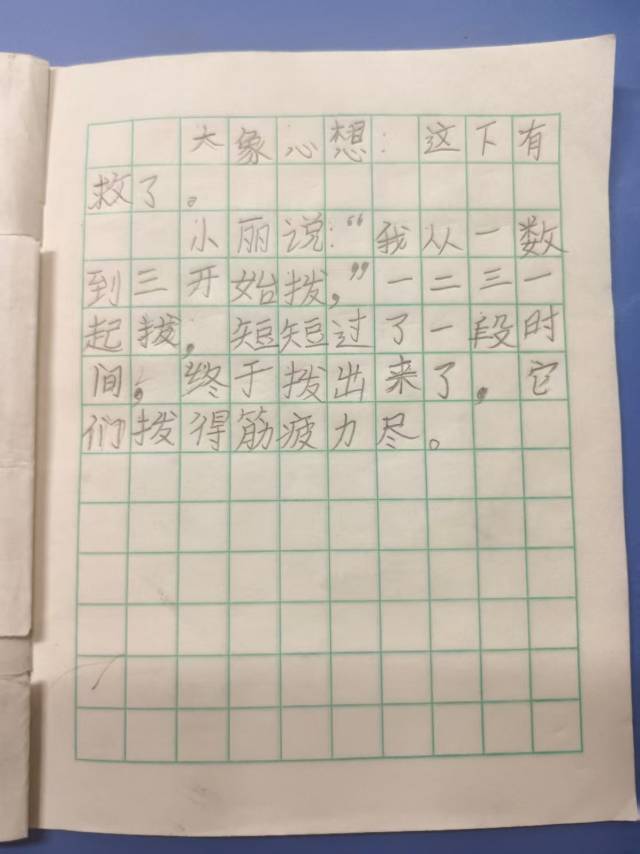 大象心想：这下有
救了。
小丽说：“我从一数
到三开始拨，”一二三一
起拨，短短过了一段时
间，终于拨出来了，它
们拨得筋疲力尽。